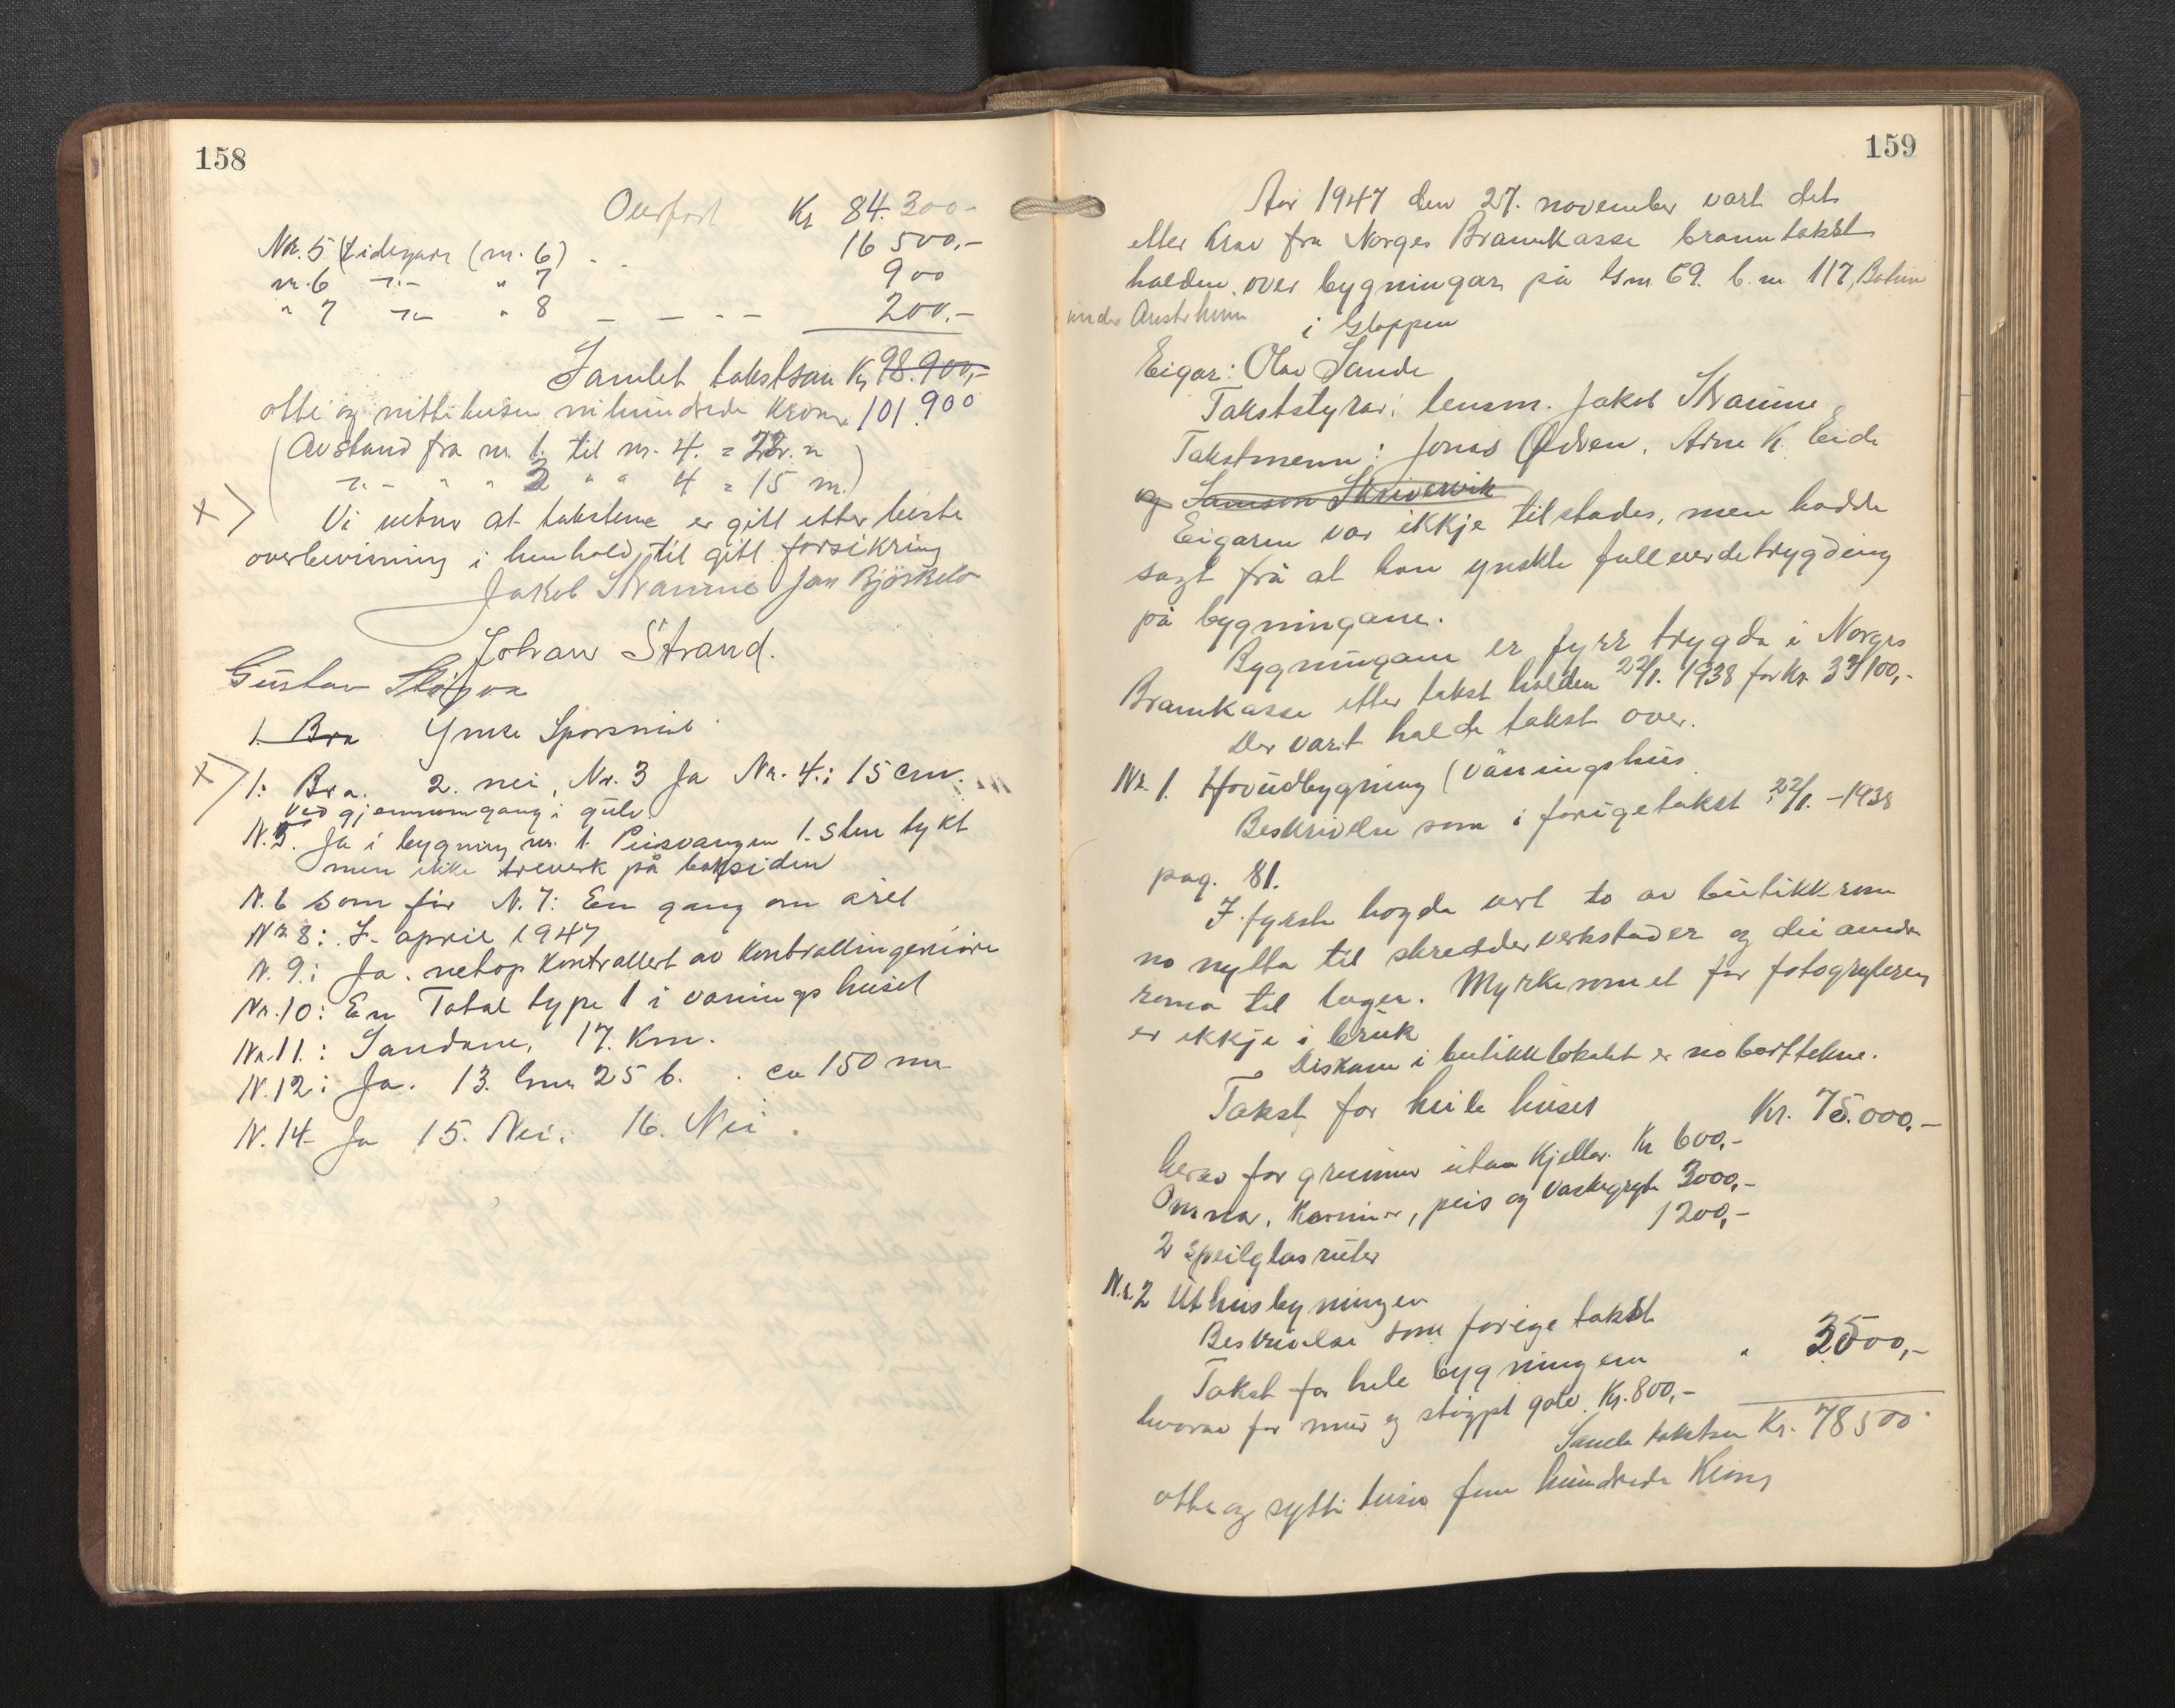 158
Overført Kr 84.300-
Nr. 5 (tidegare (nr. 6) - - 16 500,-
nr. 6 -"- " 7 900
" 7 -"- " 8 - - - - 200,-
Samlet takstsum Kr 98.900,-
otte og nitti tusen nihundrede Kroner 101.900
(Avstand fra nr. 1. til nr. 4. = 22. m
-"- " " 2 " " 4 = 15 m.)
x) Vi at takstene er gitt etter beste
overbevisning i henhold til gitt forsikring
Jakob Straume Jan Bjørkelo
Johan Strand.
Gustav
1. Bra Ymse Spørsmål
x) 1: Bra. 2. nei, Nr. 3 Ja Nr. 4.: 15 cm.
ved gjennomgang i gulv.
N. 5. Ja i bygning nr. 1. Peisvangen 1. sten tykt
men ikke treverk på baksiden
N. 6 som før N. 7: En gang om året
Nr 8: I april 1947
N. 9.: Ja. netop kontrollert av kontrollingeniøre
Nr. 10: En Total type 1 i vaningshuset
Nr. 11.: Sandane, 17. Km.
N. 12: Ja. 13. 25 b. ca 150 m
N. 14 Ja 15. Nei. 16. Nei.
159
Aar 1947 den 27. november vart det
etter krav fra Norges Brannkasse branntakst
halden over bygningar på Gnr. 69. b. nr. 117,
under Austrheim i Gloppen
Eigar: Olav Sande
Takststyrar: lensm. Jakob Straume
Takstmenn: Jonas Ødven, Arne K. Eide
og Samson Skrivervik
Eigaren var ikkje tilstades, men hadde
sagt frå at han ynskte fullverdetrygding
på bygningane.
Bygningane er fyrr trygda i Norges
Brannkasse etter takst halden 22/1. 1938 for Kr. 33100,-
Der vart halde takst over.
Nr. 1. Hovudbygning (våningshus
Beskrivelse som i forige takst 22/1. -1938
pag. 81.
I fyrste høgda vert to av butikkrom
no nytta til skreddarverkstader og dei andre
roma til lager. Myrkeromet for fotografering
er ikkje i bruk
Diskane i butikklokalet er no borttekne.
Takst for heile huset Kr. 75.000,-
herav for grunnmur utan kjellar. Kr 600,-
Omnar, kaminer, peis og vaskegryte 3000,-
2 speilglasruter 1200,-
Nr. 2 Uthusbygningen
Beskrivelse som forige takst
Takst for hele bygningen " 3500,-
hvorav for mur og støypt golv. Kr. 800,-
Samla takstsum Kr. 78500
otte og sytti tusen fem hundrede Kroner